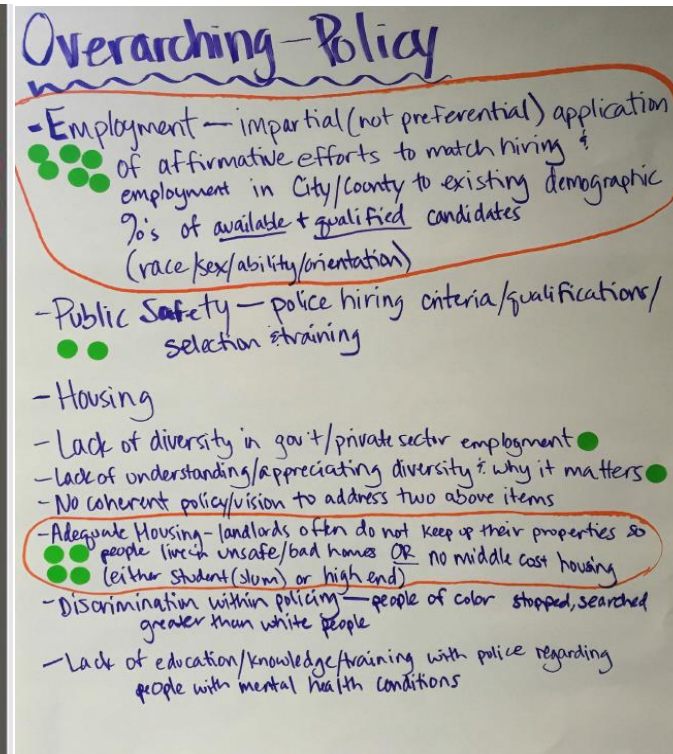 Overarching-Policy
- Employment — impartial (not preferential) application
of affirmative efforts to match hiring &
employment in City/County to existing demographic
%'s of available + qualified candidates
(race/sex/ability/orientation)
- Public Safety — police hiring criteria/qualifications/
selection & training
- Housing
- Lack of diversity in gov't/private sector employment
- Lack of understanding/appreciating diversity & why it matters
- No coherent policy/vision to address two above items
- Adequate Housing - landlords often do not keep up their properties so
people live in unsafe/bad homes OR no middle cost housing
(either student (slum) or high end)
- Discrimination within policing — people of color stopped, searched
greater than white people
- Lack of education/knowledge/training with police regarding
people with mental health conditions